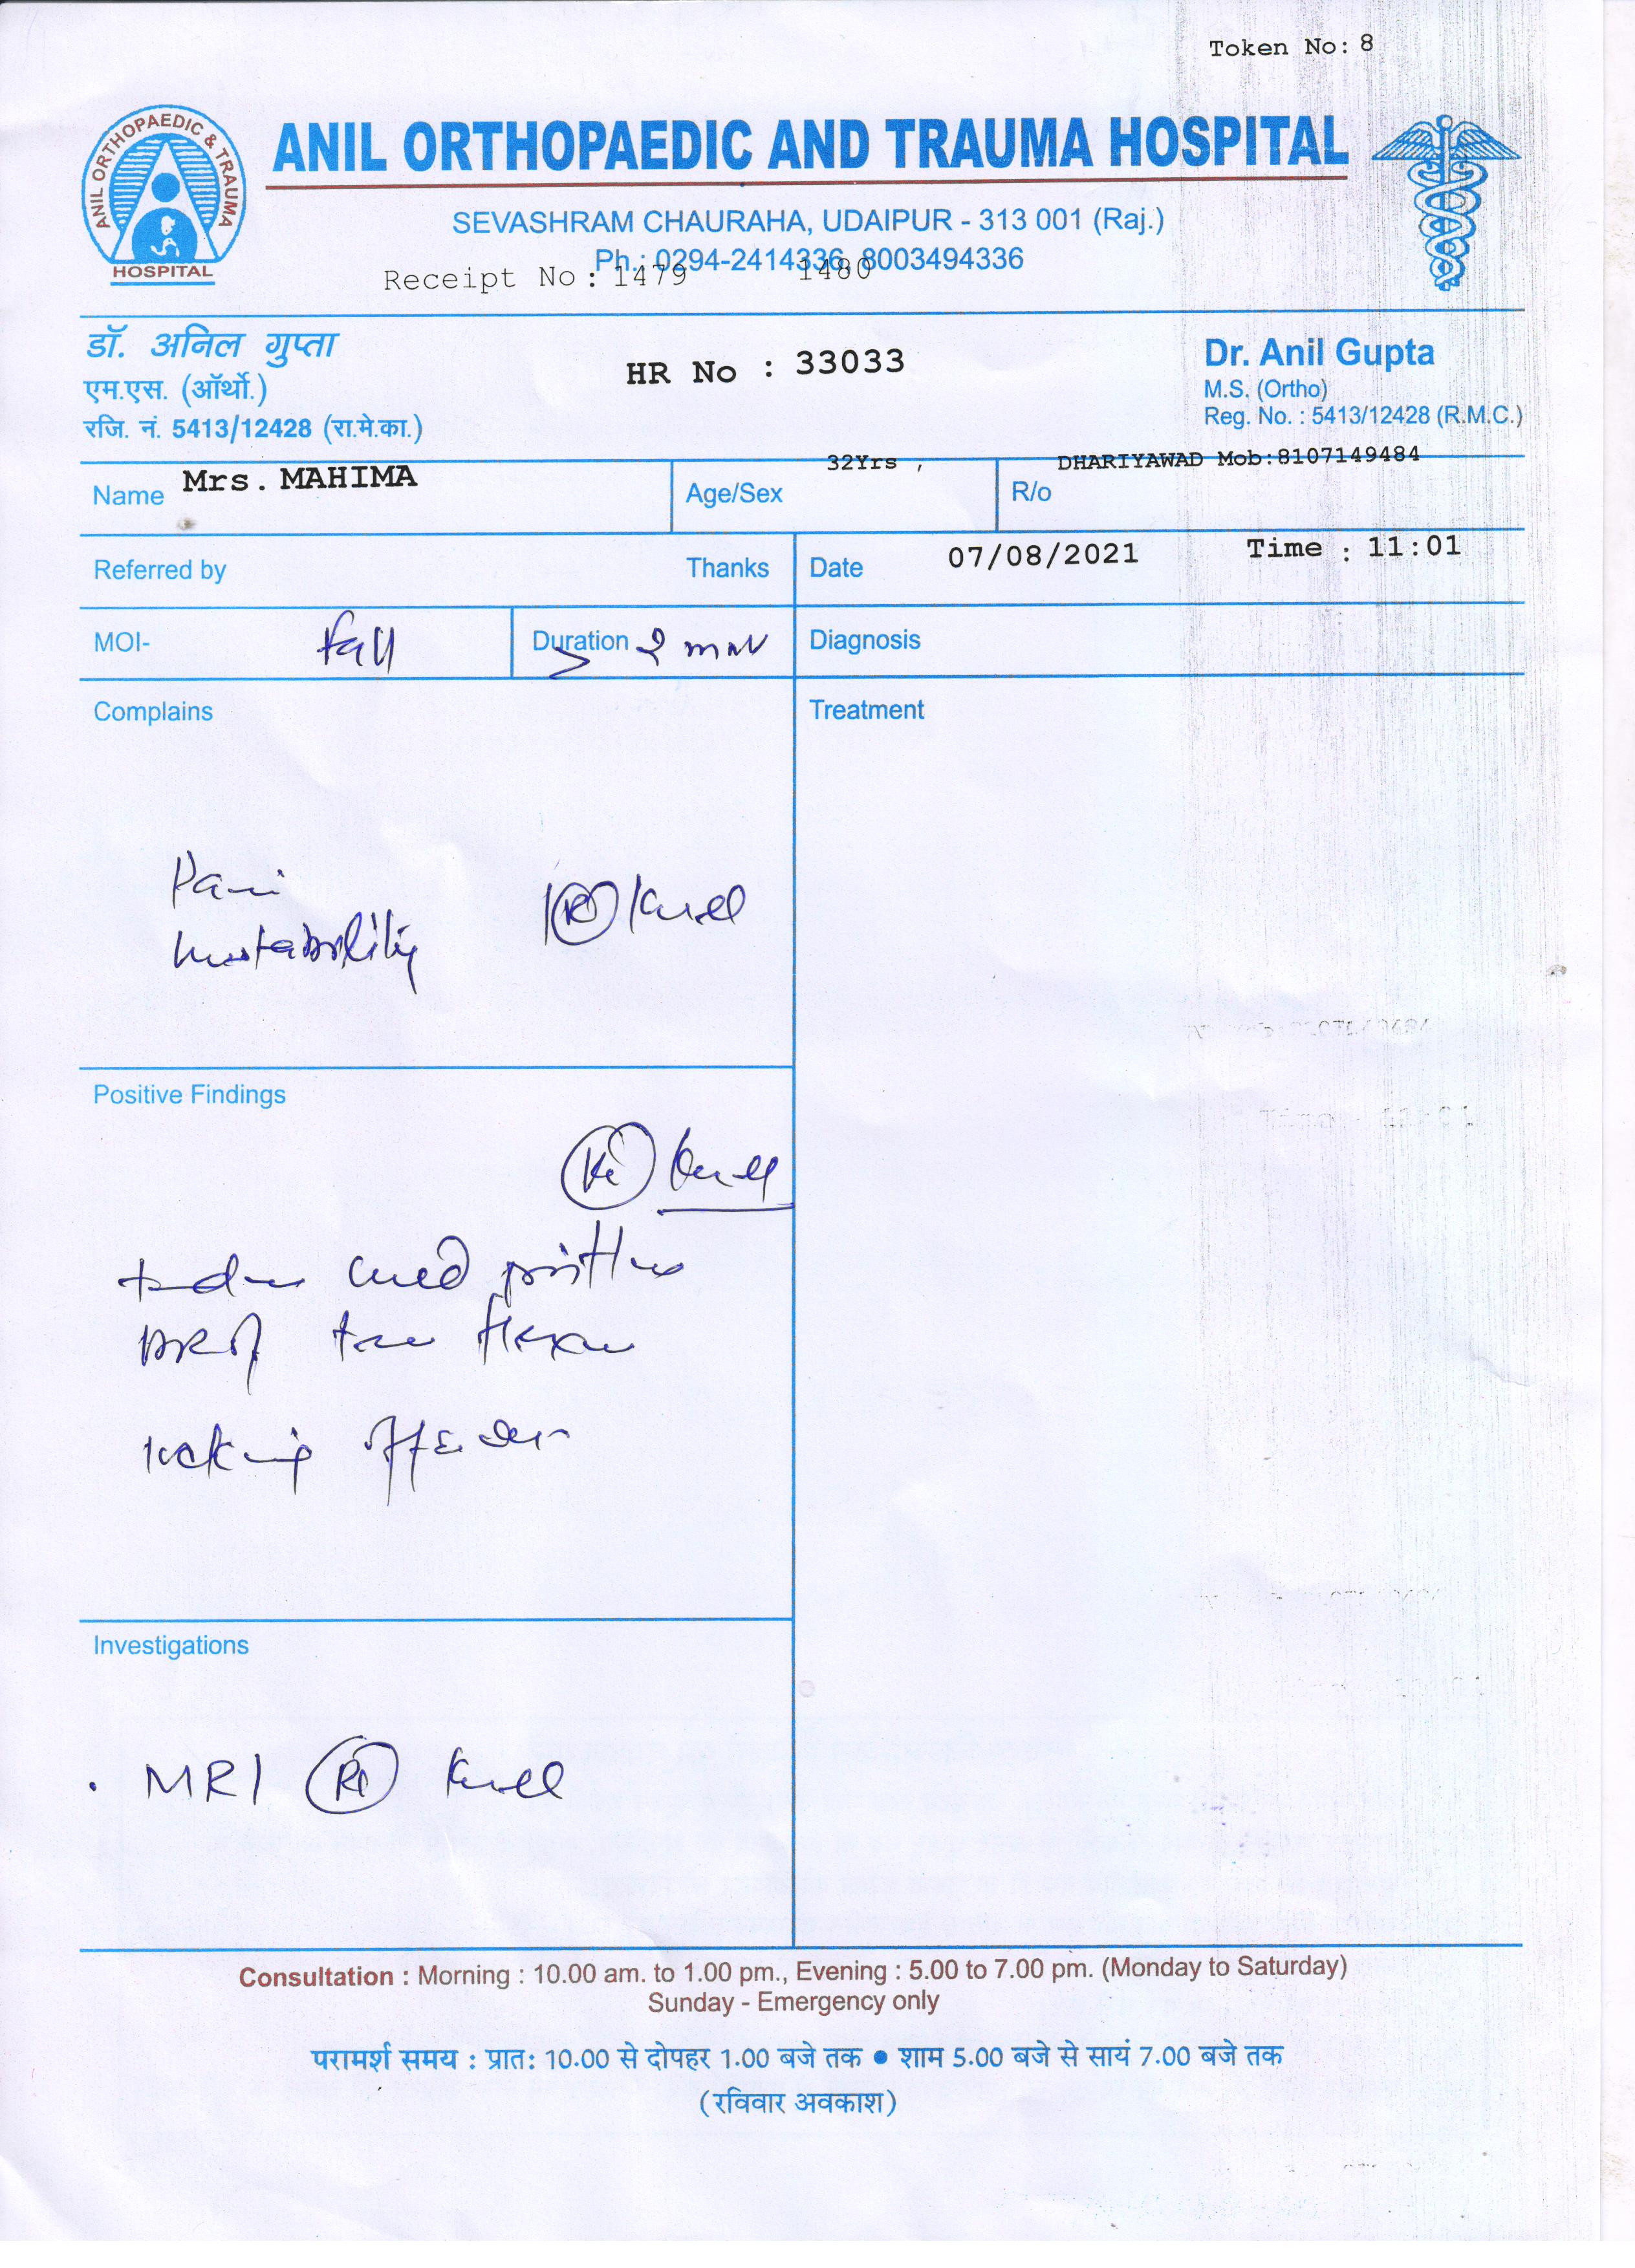 Token No: 8
ANIL ORTHOPAEDIC & TRAUMA
HOSPITAL
ANIL ORTHOPAEDIC AND TRAUMA HOSPITAL
SEVASHRAM CHAURAHA, UDAIPUR - 313 001 (Raj.)
Ph.: 0294-2414336, 8003494336
Receipt No: 1479 1480
डॉ. अनिल गुप्ता
एम.एस. (ऑर्थो.)
रजि. नं. 5413/12428 (रा.मे.का.)
HR No : 33033
Dr. Anil Gupta
M.S. (Ortho)
Reg. No. : 5413/12428 (R.M.C.)
Name Mrs. MAHIMA Age/Sex 32Yrs , R/o DHARIYAWAD Mob:8107149484
Referred by Thanks Date 07/08/2021 Time : 11:01
MOI- fall Duration > 2 Diagnosis
Complains Treatment
Pain
Instability (R) Knee
Positive Findings
(Rt) Knee
Investigations
. MRI (Rt) Knee
Consultation : Morning : 10.00 am. to 1.00 pm., Evening : 5.00 to 7.00 pm. (Monday to Saturday)
Sunday - Emergency only
परामर्श समय : प्रात: 10.00 से दोपहर 1.00 बजे तक ● शाम 5.00 बजे से सायं 7.00 बजे तक
(रविवार अवकाश)